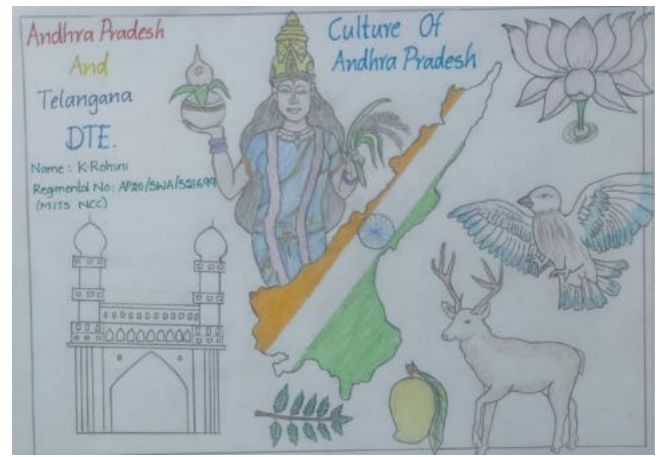 Andhra Pradesh
And
Telangana
DTE.
Name : K. Rohini
Regimental No: AP20/SWA/521699
(MITS NCC)
Culture Of
Andhra Pradesh